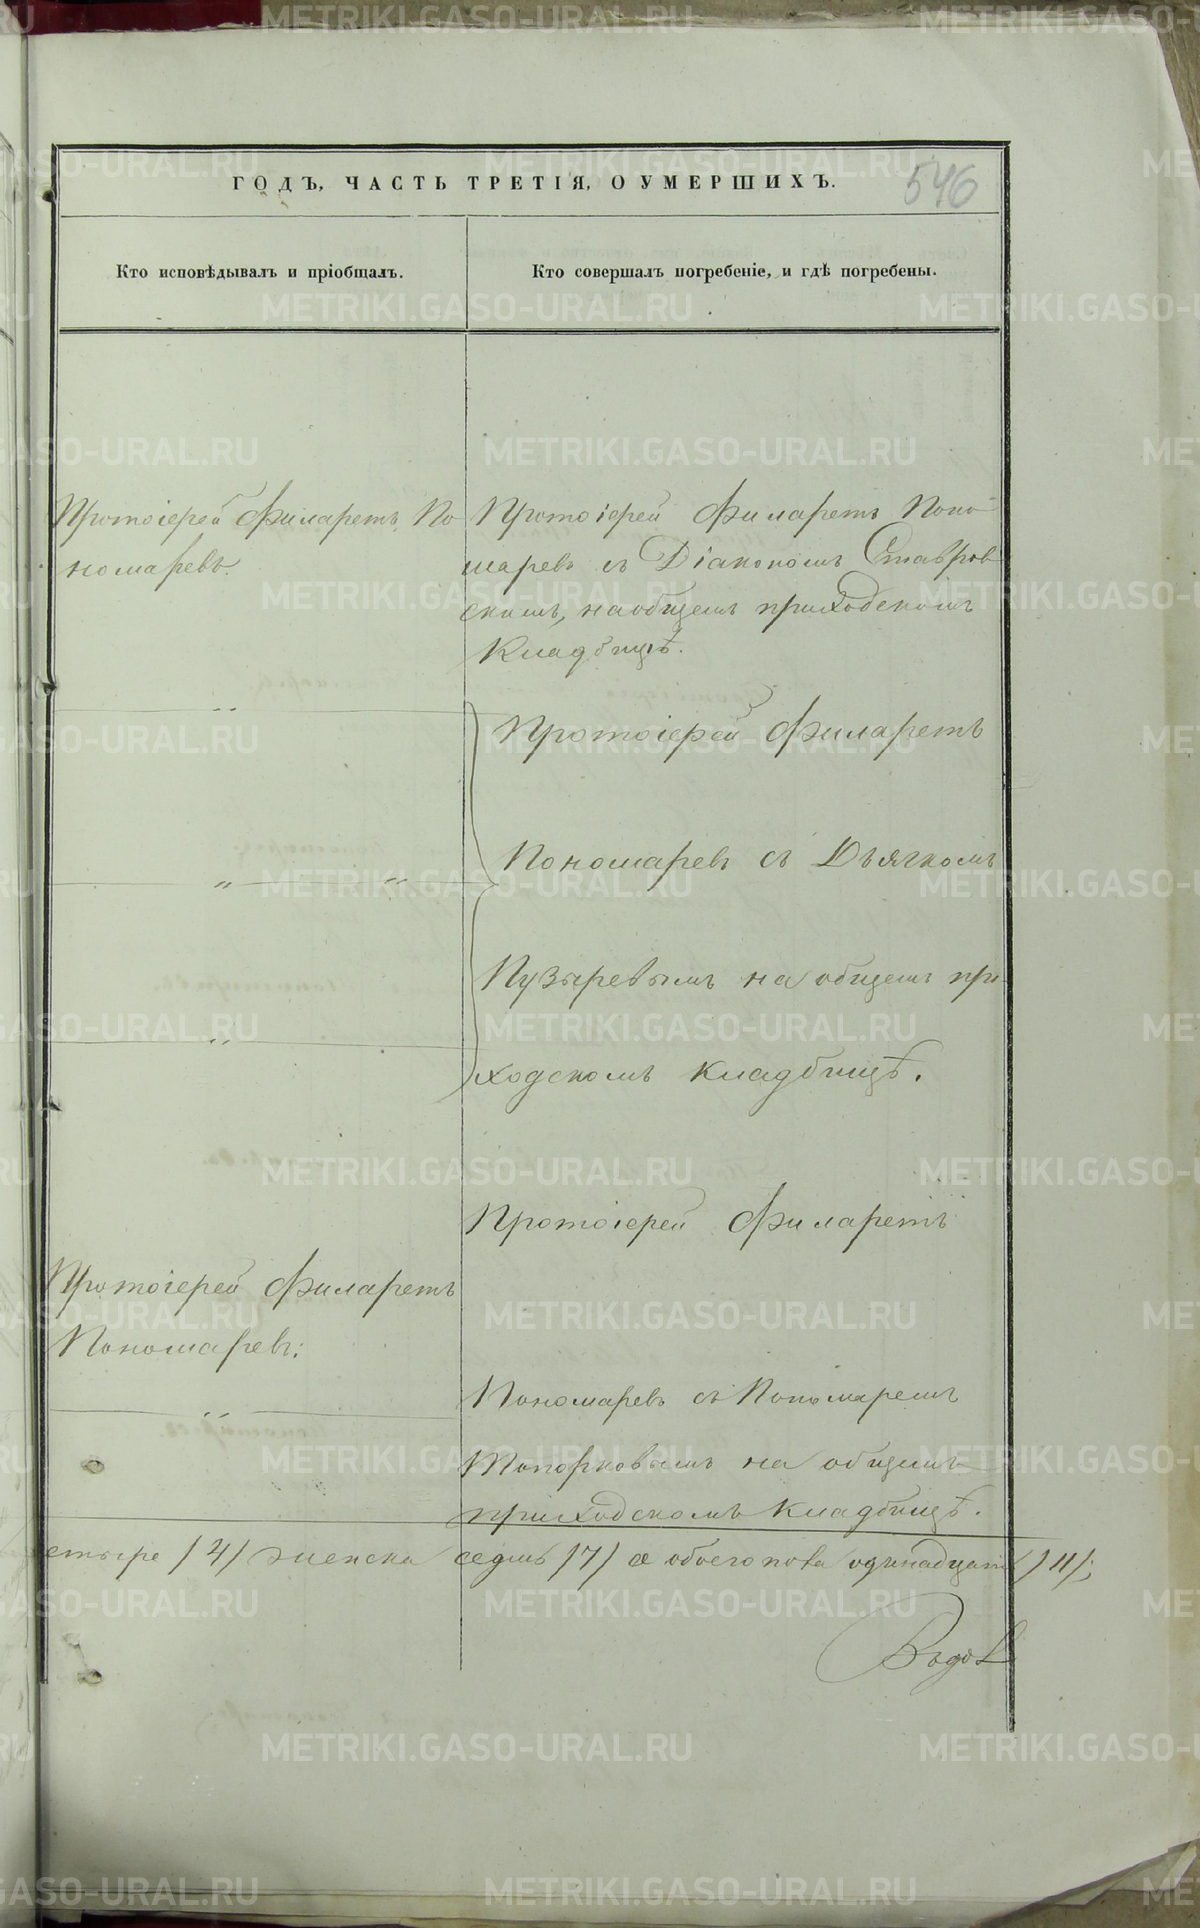 ГОДЪ, ЧАСТЬ ТРЕТІЯ, О УМЕРШИХЪ.
546
Кто исповѣдывалъ и пріобщалъ.
Кто совершалъ погребеніе, и гдѣ погребены.
Протоіерей Филаретъ По
номаревъ.
Протоіерей Филаретъ Поно
маревъ съ Діакономъ Ставров
скимъ, на общемъ приходскомъ
кладбищѣ.
Протоіерей Филаретъ
Пономаревъ съ Дьячкомъ
Пузыревымъ на общемъ при-
ходскомъ кладбищѣ.
Протоіерей Филаретъ
Пономаревъ:
Протоіерей Филаретъ
Пономаревъ съ Пономаремъ
Топорковымъ на общемъ
приходскомъ кладбищѣ.
етыре /4/ женска седмь /7/ а обоего пола одинадцать /11/;
METRIKI.GASO-URAL.RU